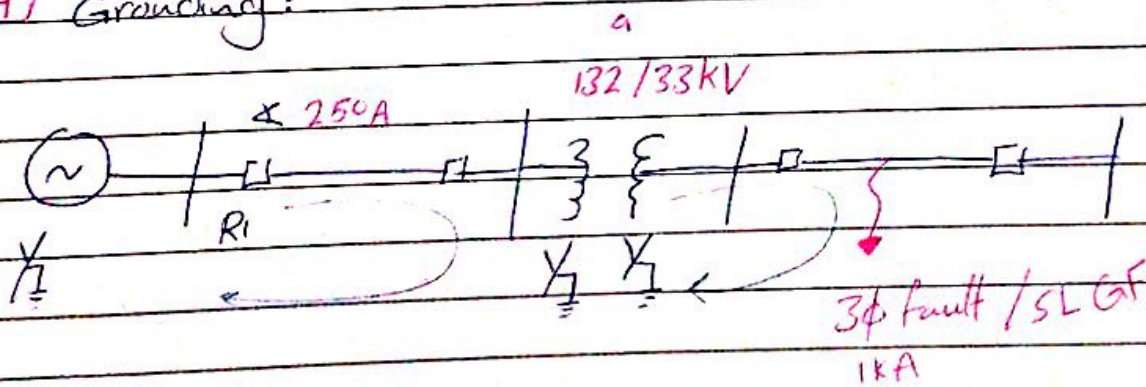 Grounding:
a
132/33kV
250A
~
R1
3ϕ fault / SLGF
1kA